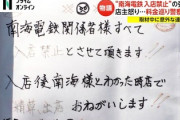 オンライン
物議
"南海電鉄 入店禁止"の張
店主怒り…料金巡り警察
取材中に意外な連
南海電鉄関係者様すべて
入店禁止とさせて頂きます
入店後南海様とわかった時点で
おねがいします